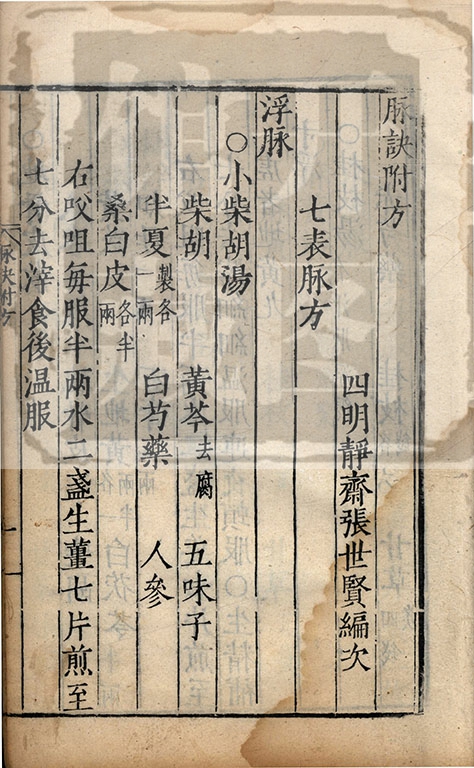 脉訣附方
四明靜齋張世賢編次
七表脉方
浮脉
○小柴胡湯
柴胡 黃芩去腐 五味子
半夏製各一兩 白芍藥 人參
桑白皮各半兩
右㕮咀每服半兩水二盞生薑七片煎至
七分去滓食後温服
脉訣附方